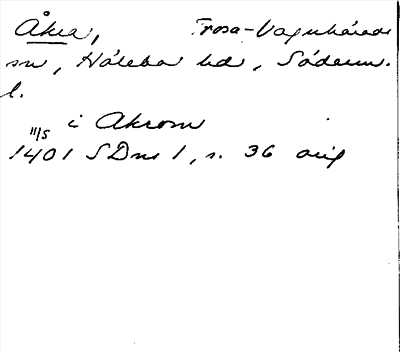 Åkra, Trosa-Vagnhärads
sn, Hölebo hd, Söderm.
l.
i Akrom
11/5
1401 SDns 1, s. 36 orig